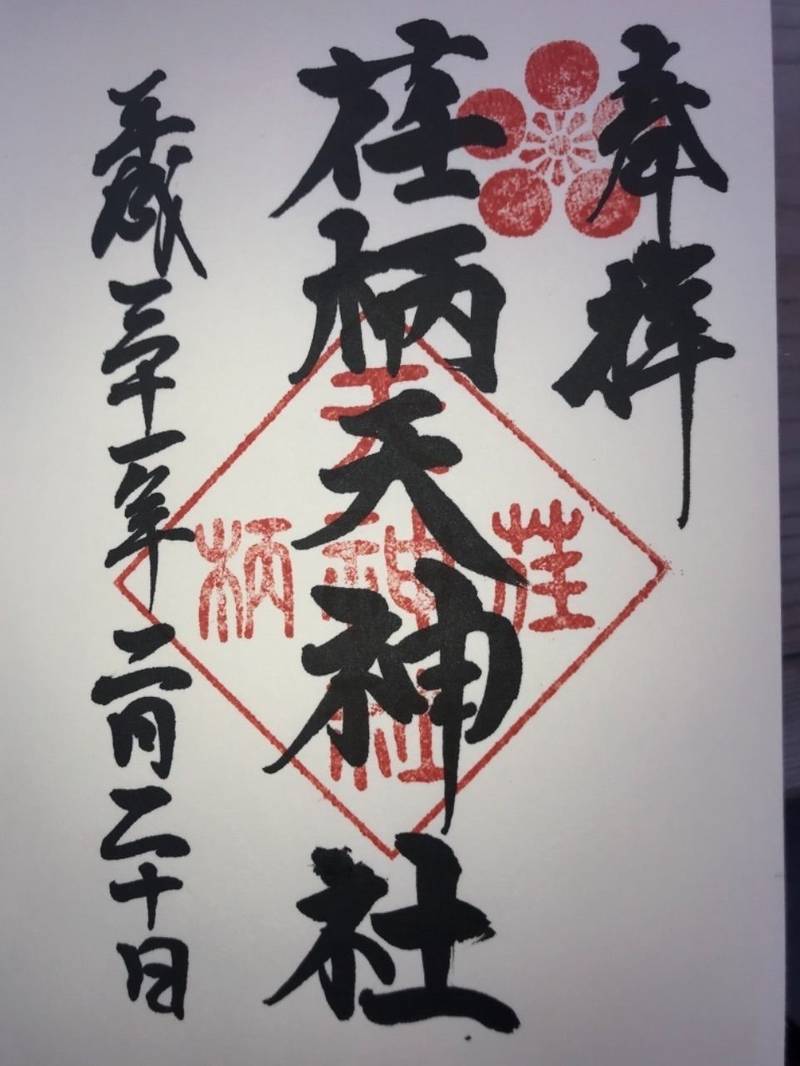 奉拝
荏柄天神社
平成三十一年二月二十日
荏柄天神社